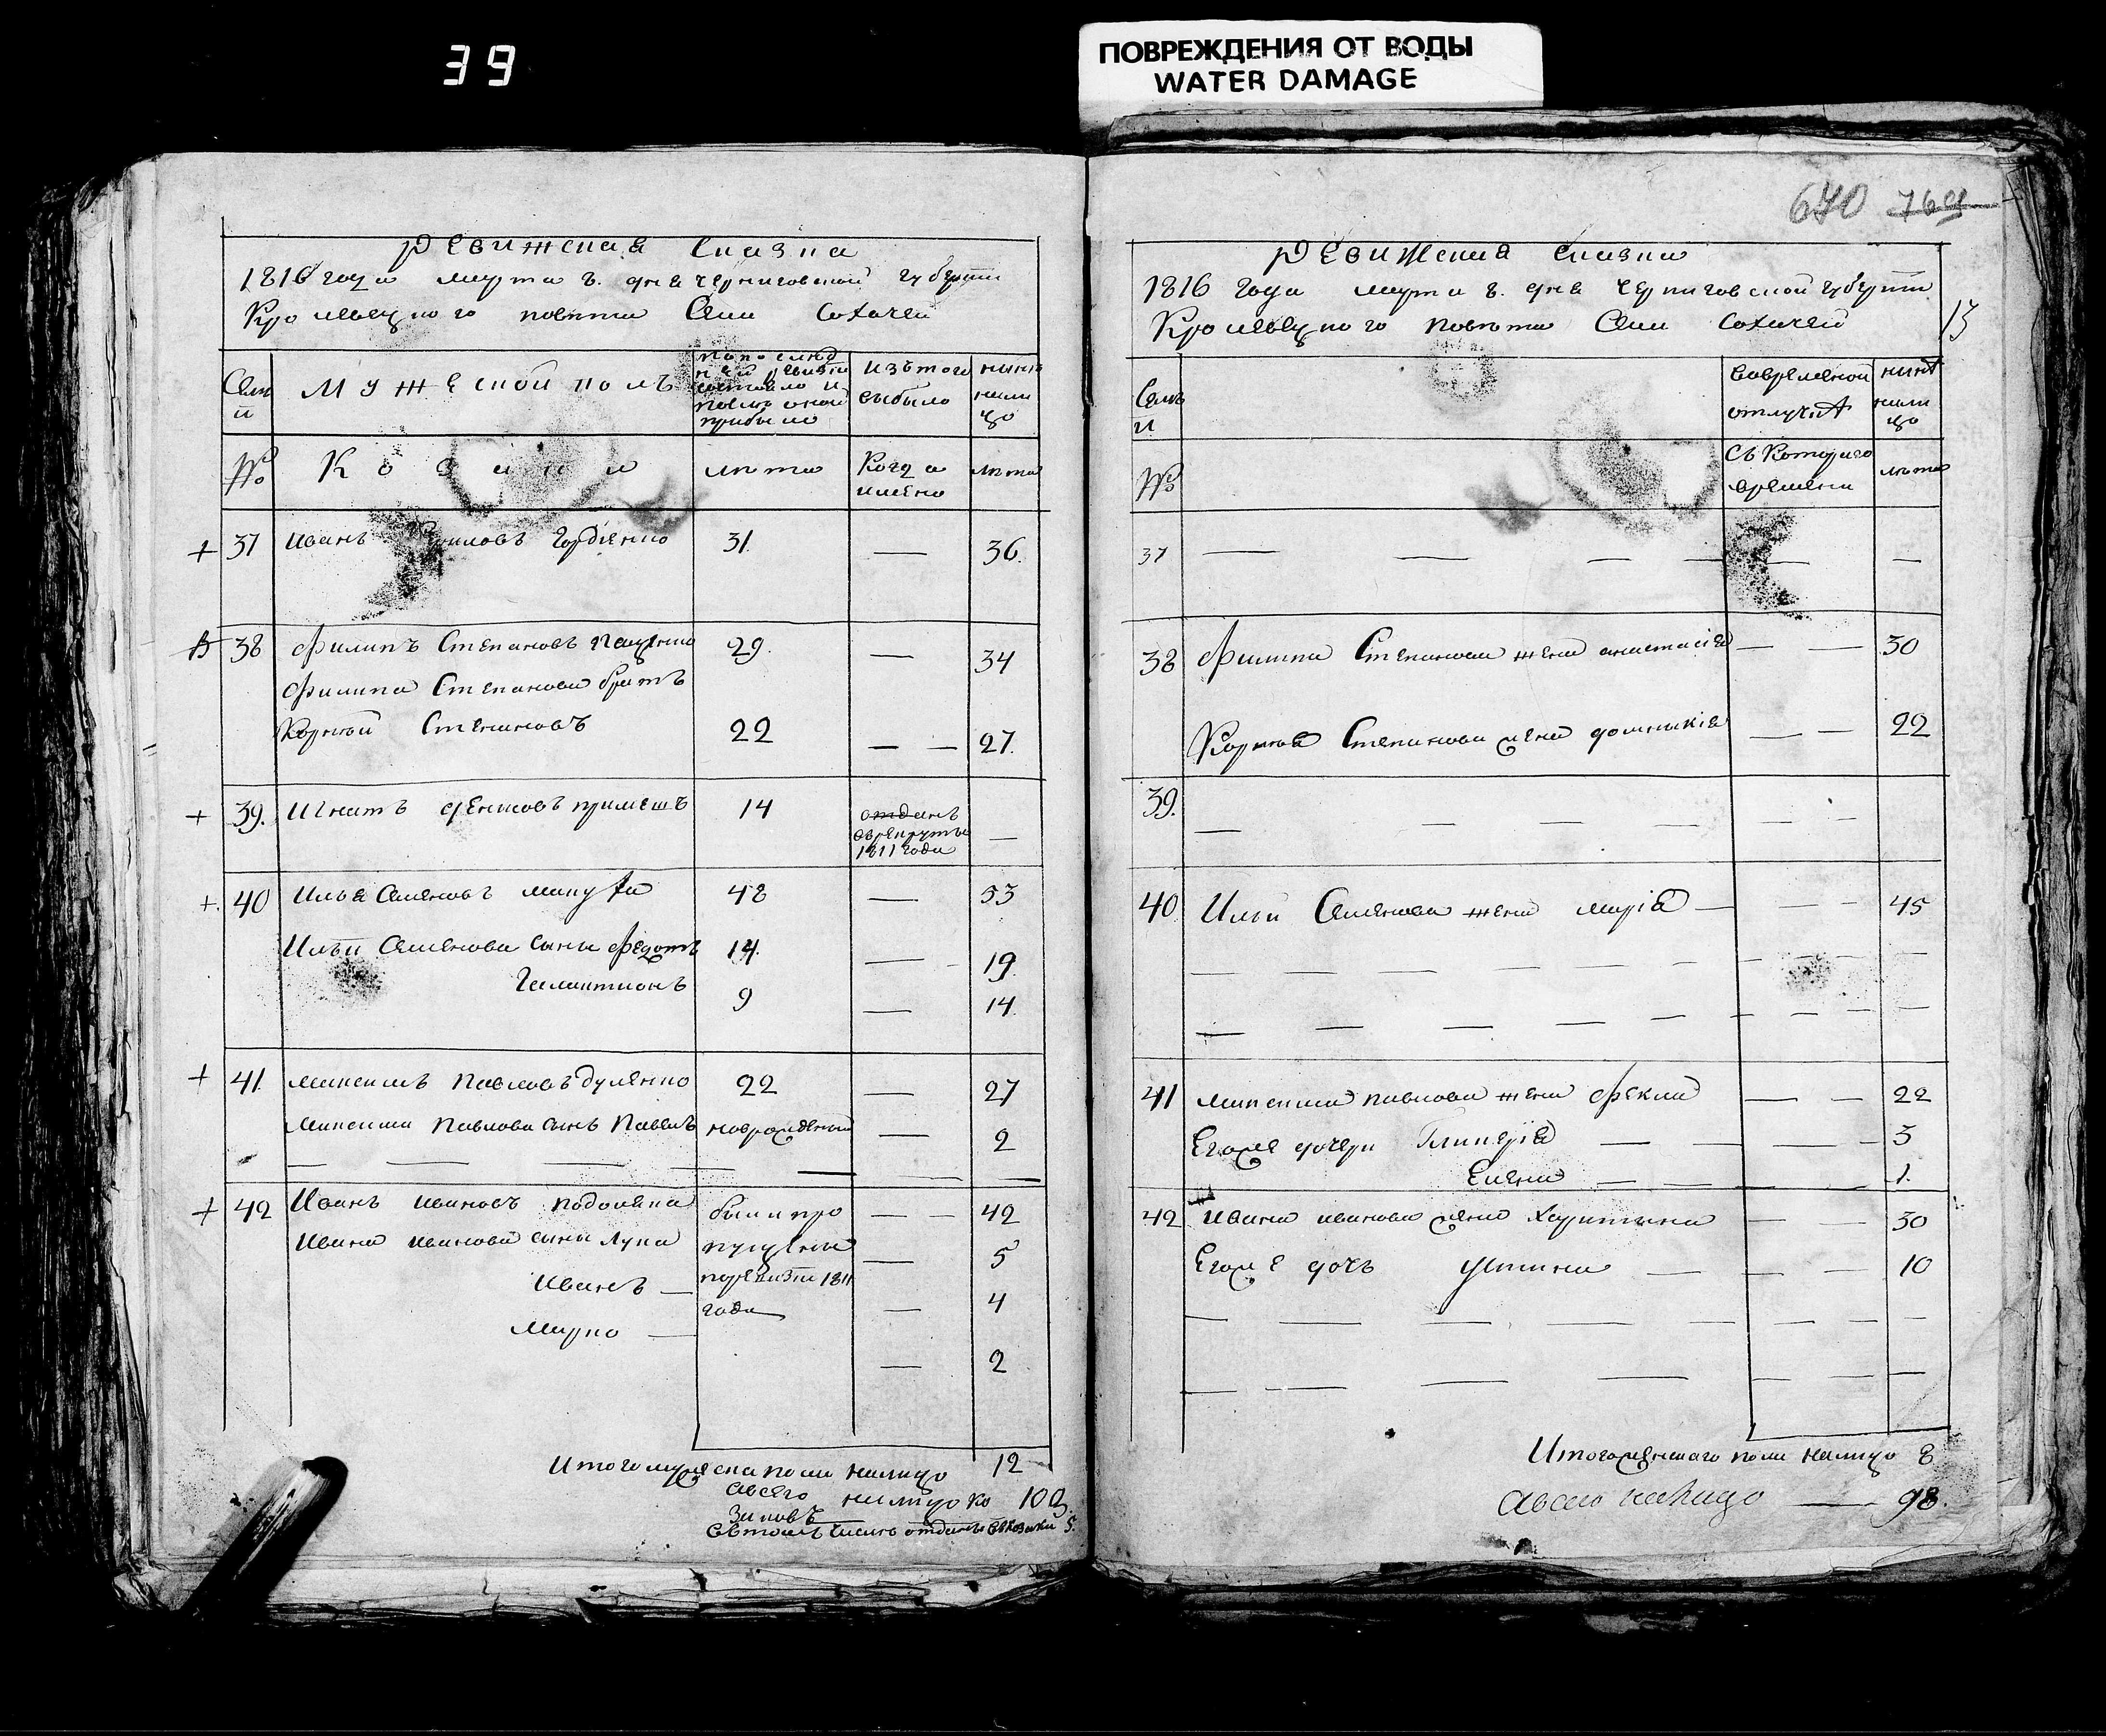 39
ПОВРЕЖДЕНИЯ ОТ ВОДЫ
WATER DAMAGE
Ревижская Сказка
1816 года марта ъ. дня черниговской губерни
Кролевецкого повѣта Села Сохачей
Семи
Мужеской полъ
по послед
ней ревизи
состояло и
после оной
прибыло
изътого
выбыло
нынѣ
нали
цо
№
Козаки
лѣта
Когда
имено
лѣта
37 Иванъ Гордіенко 31. — 36.
38 Филипъ Степановъ Пащенко 29. — 34
Филипа Степанова братъ
Корнѣй Степановъ 22 — — 27.
39. Игнатъ 14 отданъ
врекруты
1811 года —
40 Илья Семеновъ 48 — 53
Ильи Семенова сыны Федотъ 14. — 19.
Галактионъ 9 — 14.
41. Максимъ Павловъ Дуленко 22 — 27
Максима Павлова сынъ Павелъ новрожденый — 2
42 Иванъ Ивановъ Подоляка были про — — 42
Ивана Иванова сыны Лука пущены — 5
Иванъ — поревизи 1811 — 4
Марко — года — 2
Итого мужеска пола налицо 12
авсего налицо ко
заковъ
втомъ числе отданъ 5.
670 764
13
Ревижская сказка
1816 года марта ъ. дня черниговской губерни
Кролевецкого повѣта Села Сохачей
Семь
и
вовременой
отлучкѣ
нинѣ
нали
цо
№
Съ Котораго
времени
лѣта
37 — — — — — —
38 Филипа Степанова жена анастасія — — 30
Корнѣя Степанова жена домникія — — 22
39. — — — — — — —
40 Ильи Семенова жена марія — — — 45
41 Максима Павлова жена Фекла — — 22
Егоже дочери Гликерія — — — 3
Елена — — — 1.
42 Ивана иванова жена Харитина — — 30
Егоже дочь устина — — — 10
Итогоженскаго пола налицо 8
Авсего налицо — 98.